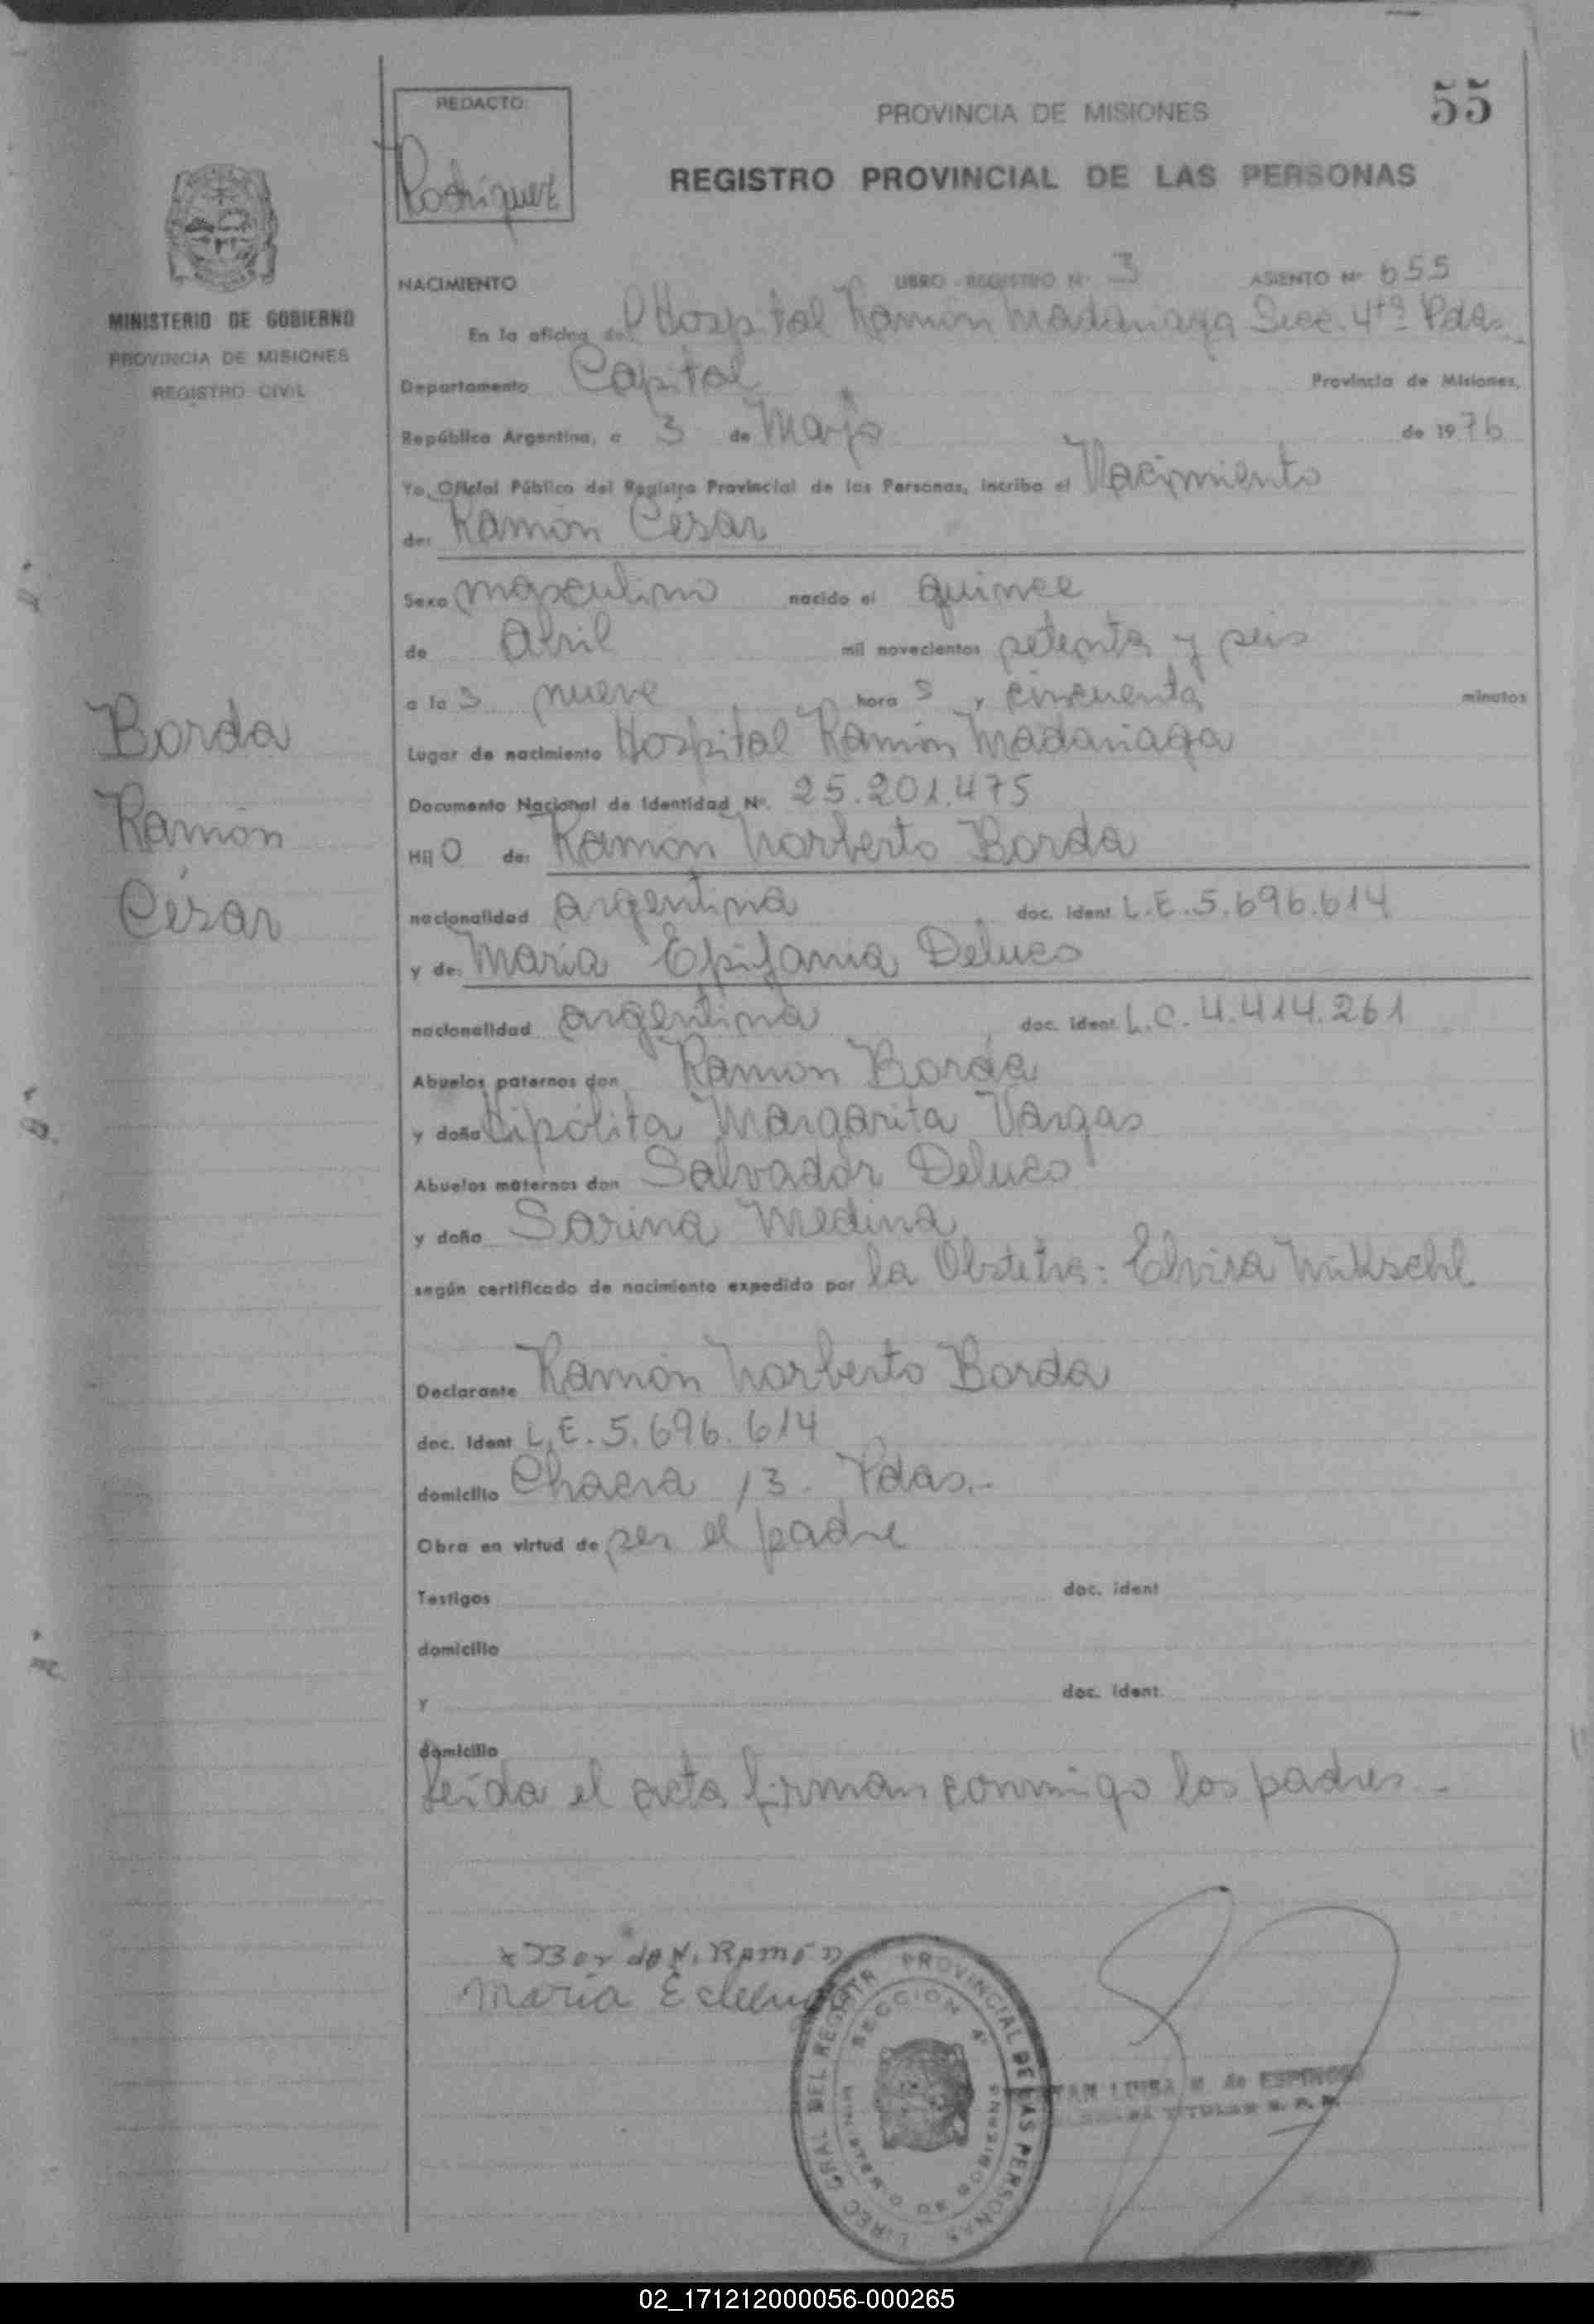 55
REDACTO:
Rodriguez
PROVINCIA DE MISIONES
REGISTRO PROVINCIAL DE LAS PERSONAS
MINISTERIO DE GOBIERNO
PROVINCIA DE MISIONES
REGISTRO CIVIL
Borda
Ramón
César
NACIMIENTO LIBRO - REGISTRO Nº 3 ASIENTO Nº 655
En la oficina del Hospital Ramón Madariaga Secc. 4ta Pdas.
Departamento Capital Provincia de Misiones,
República Argentina, a 3 de Mayo de 1976
Yo, Oficial Público del Registro Provincial de las Personas, incribo el Nacimiento
de: Ramón César
Sexo masculino nacido el quince
de Abril mil novecientos setenta y seis
a la s nueve hora s y cincuenta minutos
Lugar de nacimiento Hospital Ramón Madariaga
Documento Nacional de Identidad Nº. 25.201.475
Hij o de: Ramón Norberto Borda
nacionalidad argentina doc. ident L.E. 5.696.614
y de: María Epifania Deluco
nacionalidad argentina doc. ident. L.C. 4.414.261
Abuelos paternos don Ramón Borda
y doña Hipólita Margarita Vargas
Abuelos maternos don Salvador Deluco
y doña Sarina Medina
según certificado de nacimiento expedido por la Obstetra: Elvira Mikschl
Declarante Ramón Norberto Borda
doc. Ident L.E. 5.696.614
domicilio Chacra 13. Pdas.-
Obra en virtud de ser el padre
Testigos doc. ident
domicilio
y doc. ident.
domicilio
Leída el acta firman conmigo los padres.-
Borda N. Ramón
María E
DIREC GRAL DEL REGISTR PROVINCIAL DE LAS PERSONAS
SECCION 4ª
MINISTERIO DE GOBIERNO
LUISA M. de ESPINOSA
TITULAR R. P. P.
02_171212000056-000265